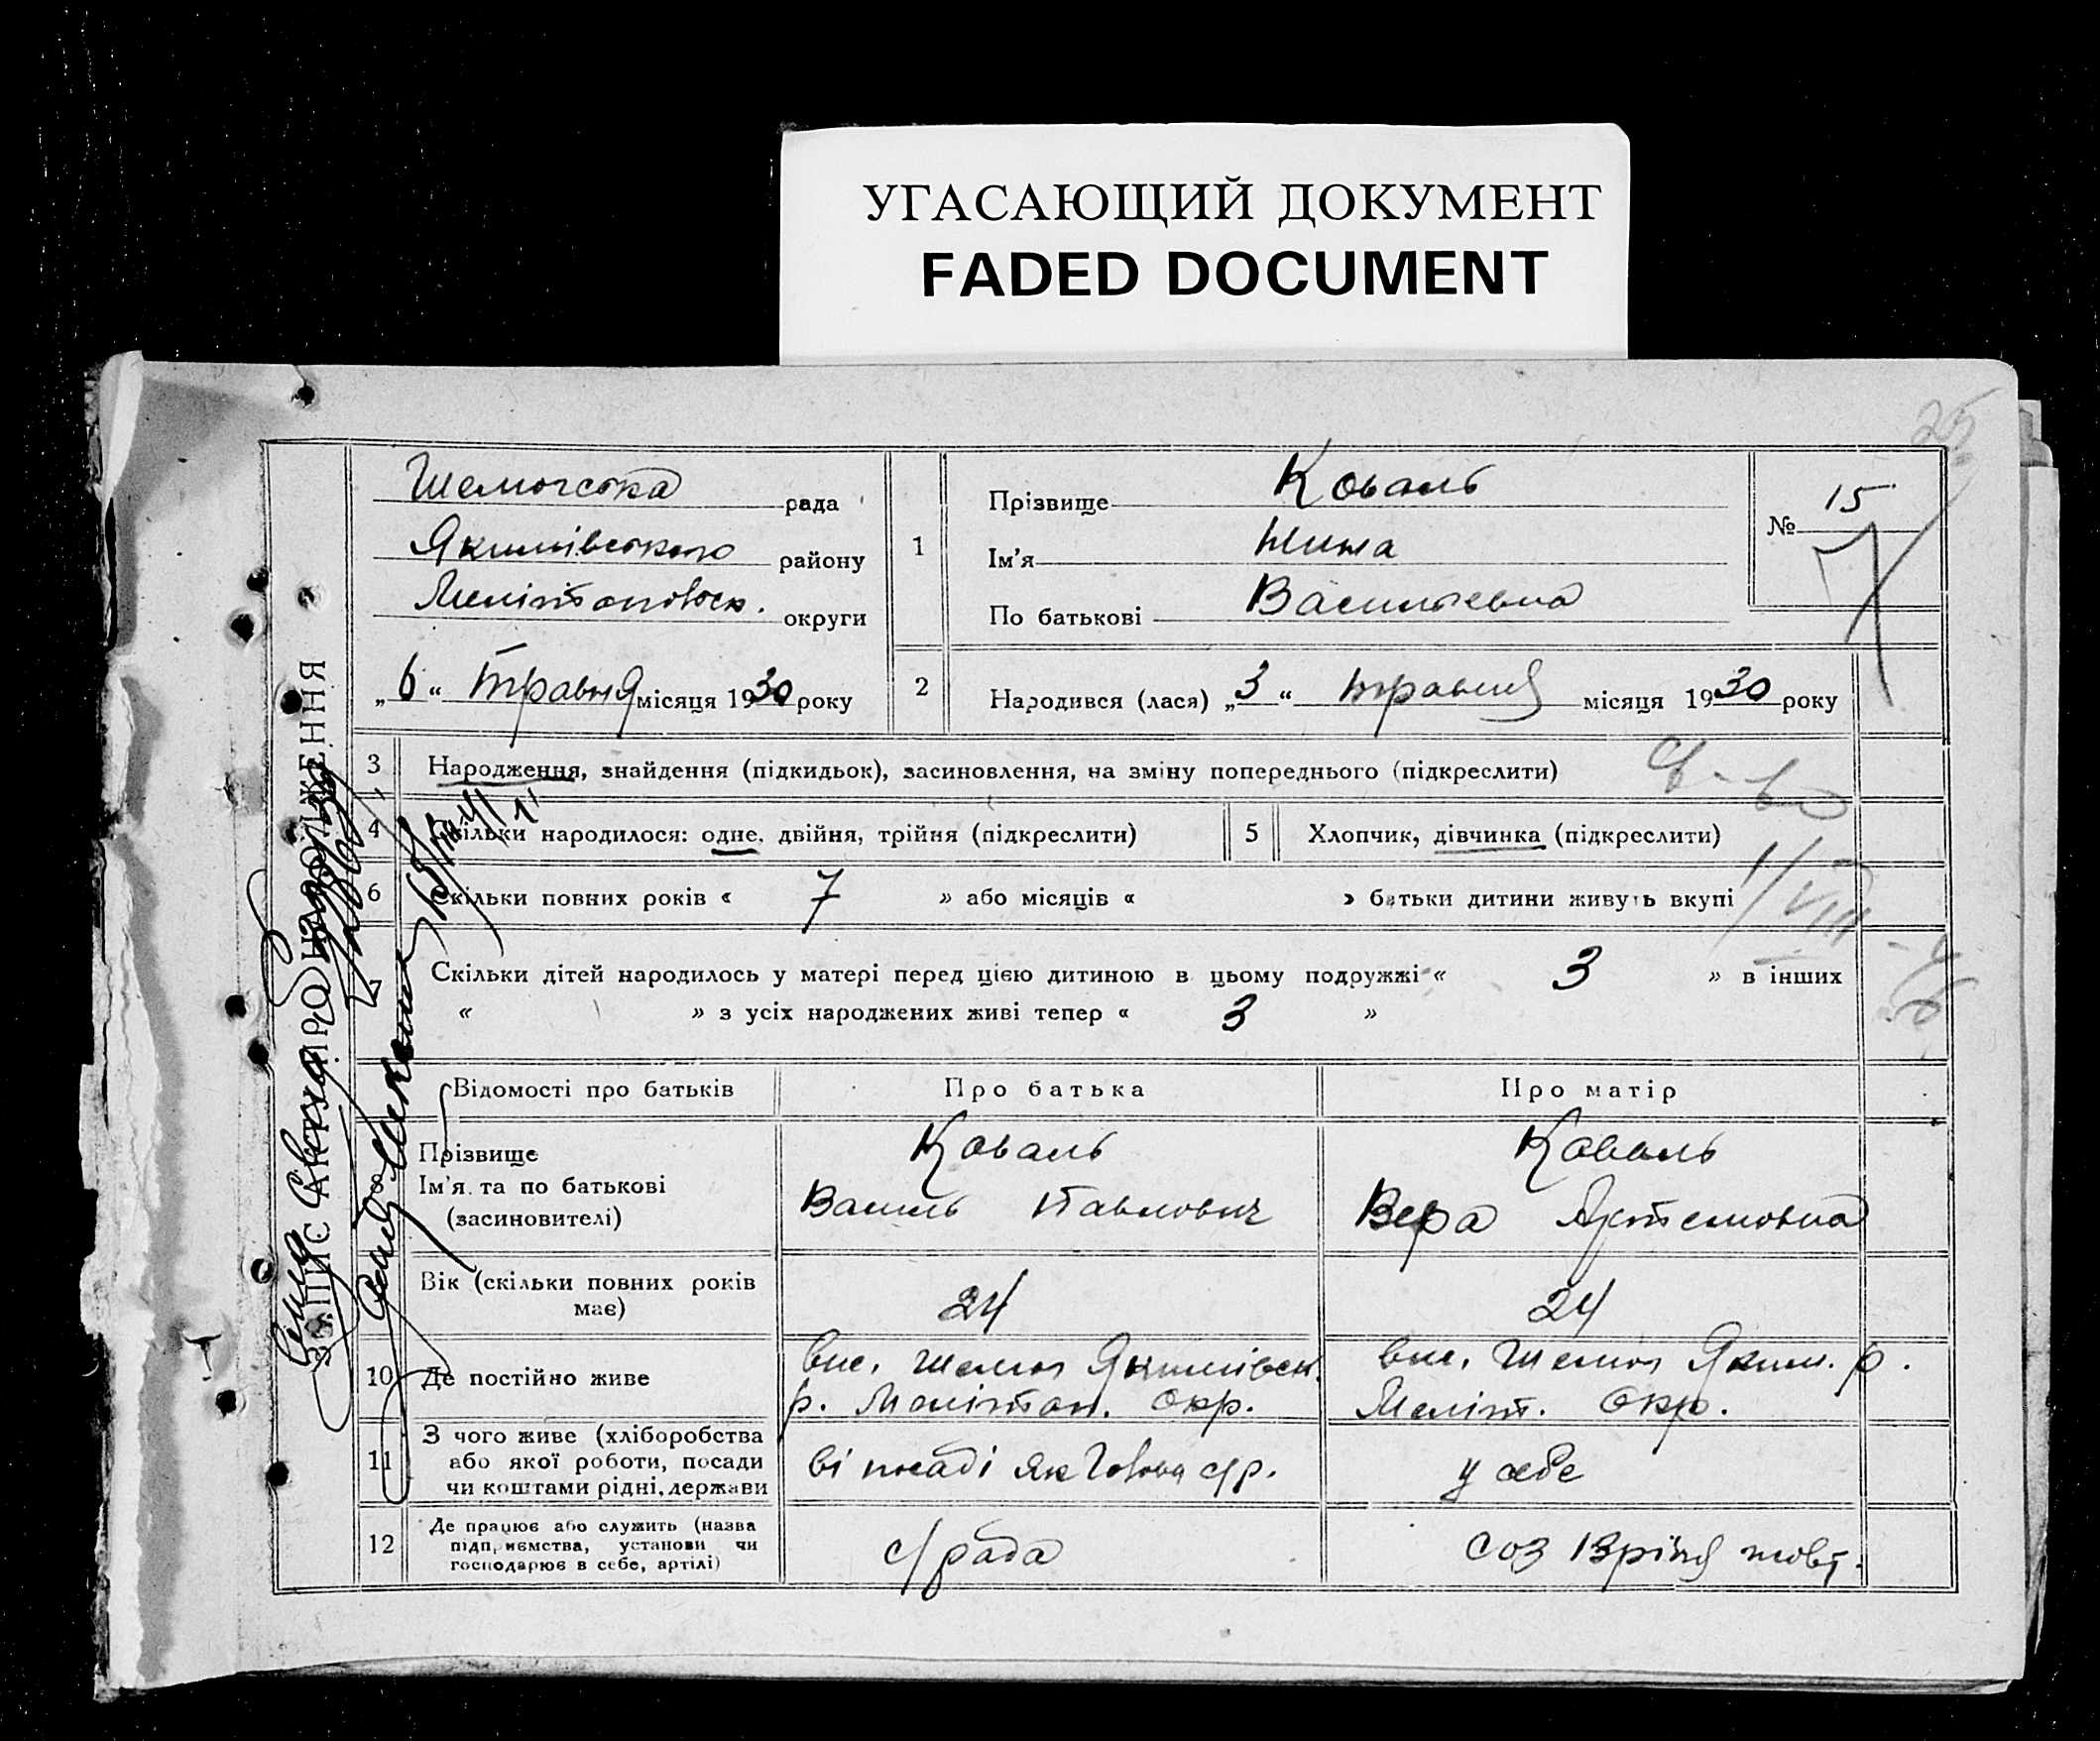 УГАСАЮЩИЙ ДОКУМЕНТ
FADED DOCUMENT
рада
Якимівського району
округи
„6“ травня місяця 1930 року
1
Прізвище Коваль
Ім'я Нина
По батькові Васильевна
№ 15
2
Народився (лася) „3“ травня місяця 1930 року
3 Народження, знайдення (підкидьок), засиновлення, на зміну попереднього (підкреслити)
4 Скільки народилося: одне, двійня, трійня (підкреслити)
5 Хлопчик, дівчинка (підкреслити)
6 Скільки повних років « 7 » або місяців « » батьки дитини живуть вкупі
Скільки дітей народилось у матері перед цією дитиною в цьому подружжі « 3 » в інших
« » з усіх народжених живі тепер « 3 »
Відомості про батьків Про батька Про матір
Прізвище
Ім'я та по батькові
(засиновителі)
Коваль
Василь Павлович
Коваль
Вера Артемовна
Вік (скільки повних років
має)
24
24
10 Де постійно живе
р. Мелітоп. Окр.
Меліт. Окр.
11
З чого живе (хліборобства
або якої роботи, посади
чи коштами рідні, держави
ві посаді як Голова с/р.
у себе
12
Де працює або служить (назва
підприємства, установи чи
господарює в себе, артілі)
с/рада
соз
ЗАПИС АКТУ ПРО НАРОДЖЕННЯ